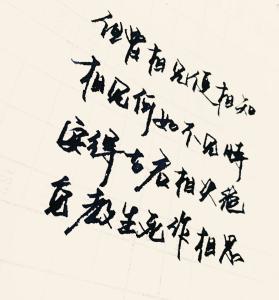 但曾相见便相知
相见何如不见时
安得与君相决绝
免教生死作相思